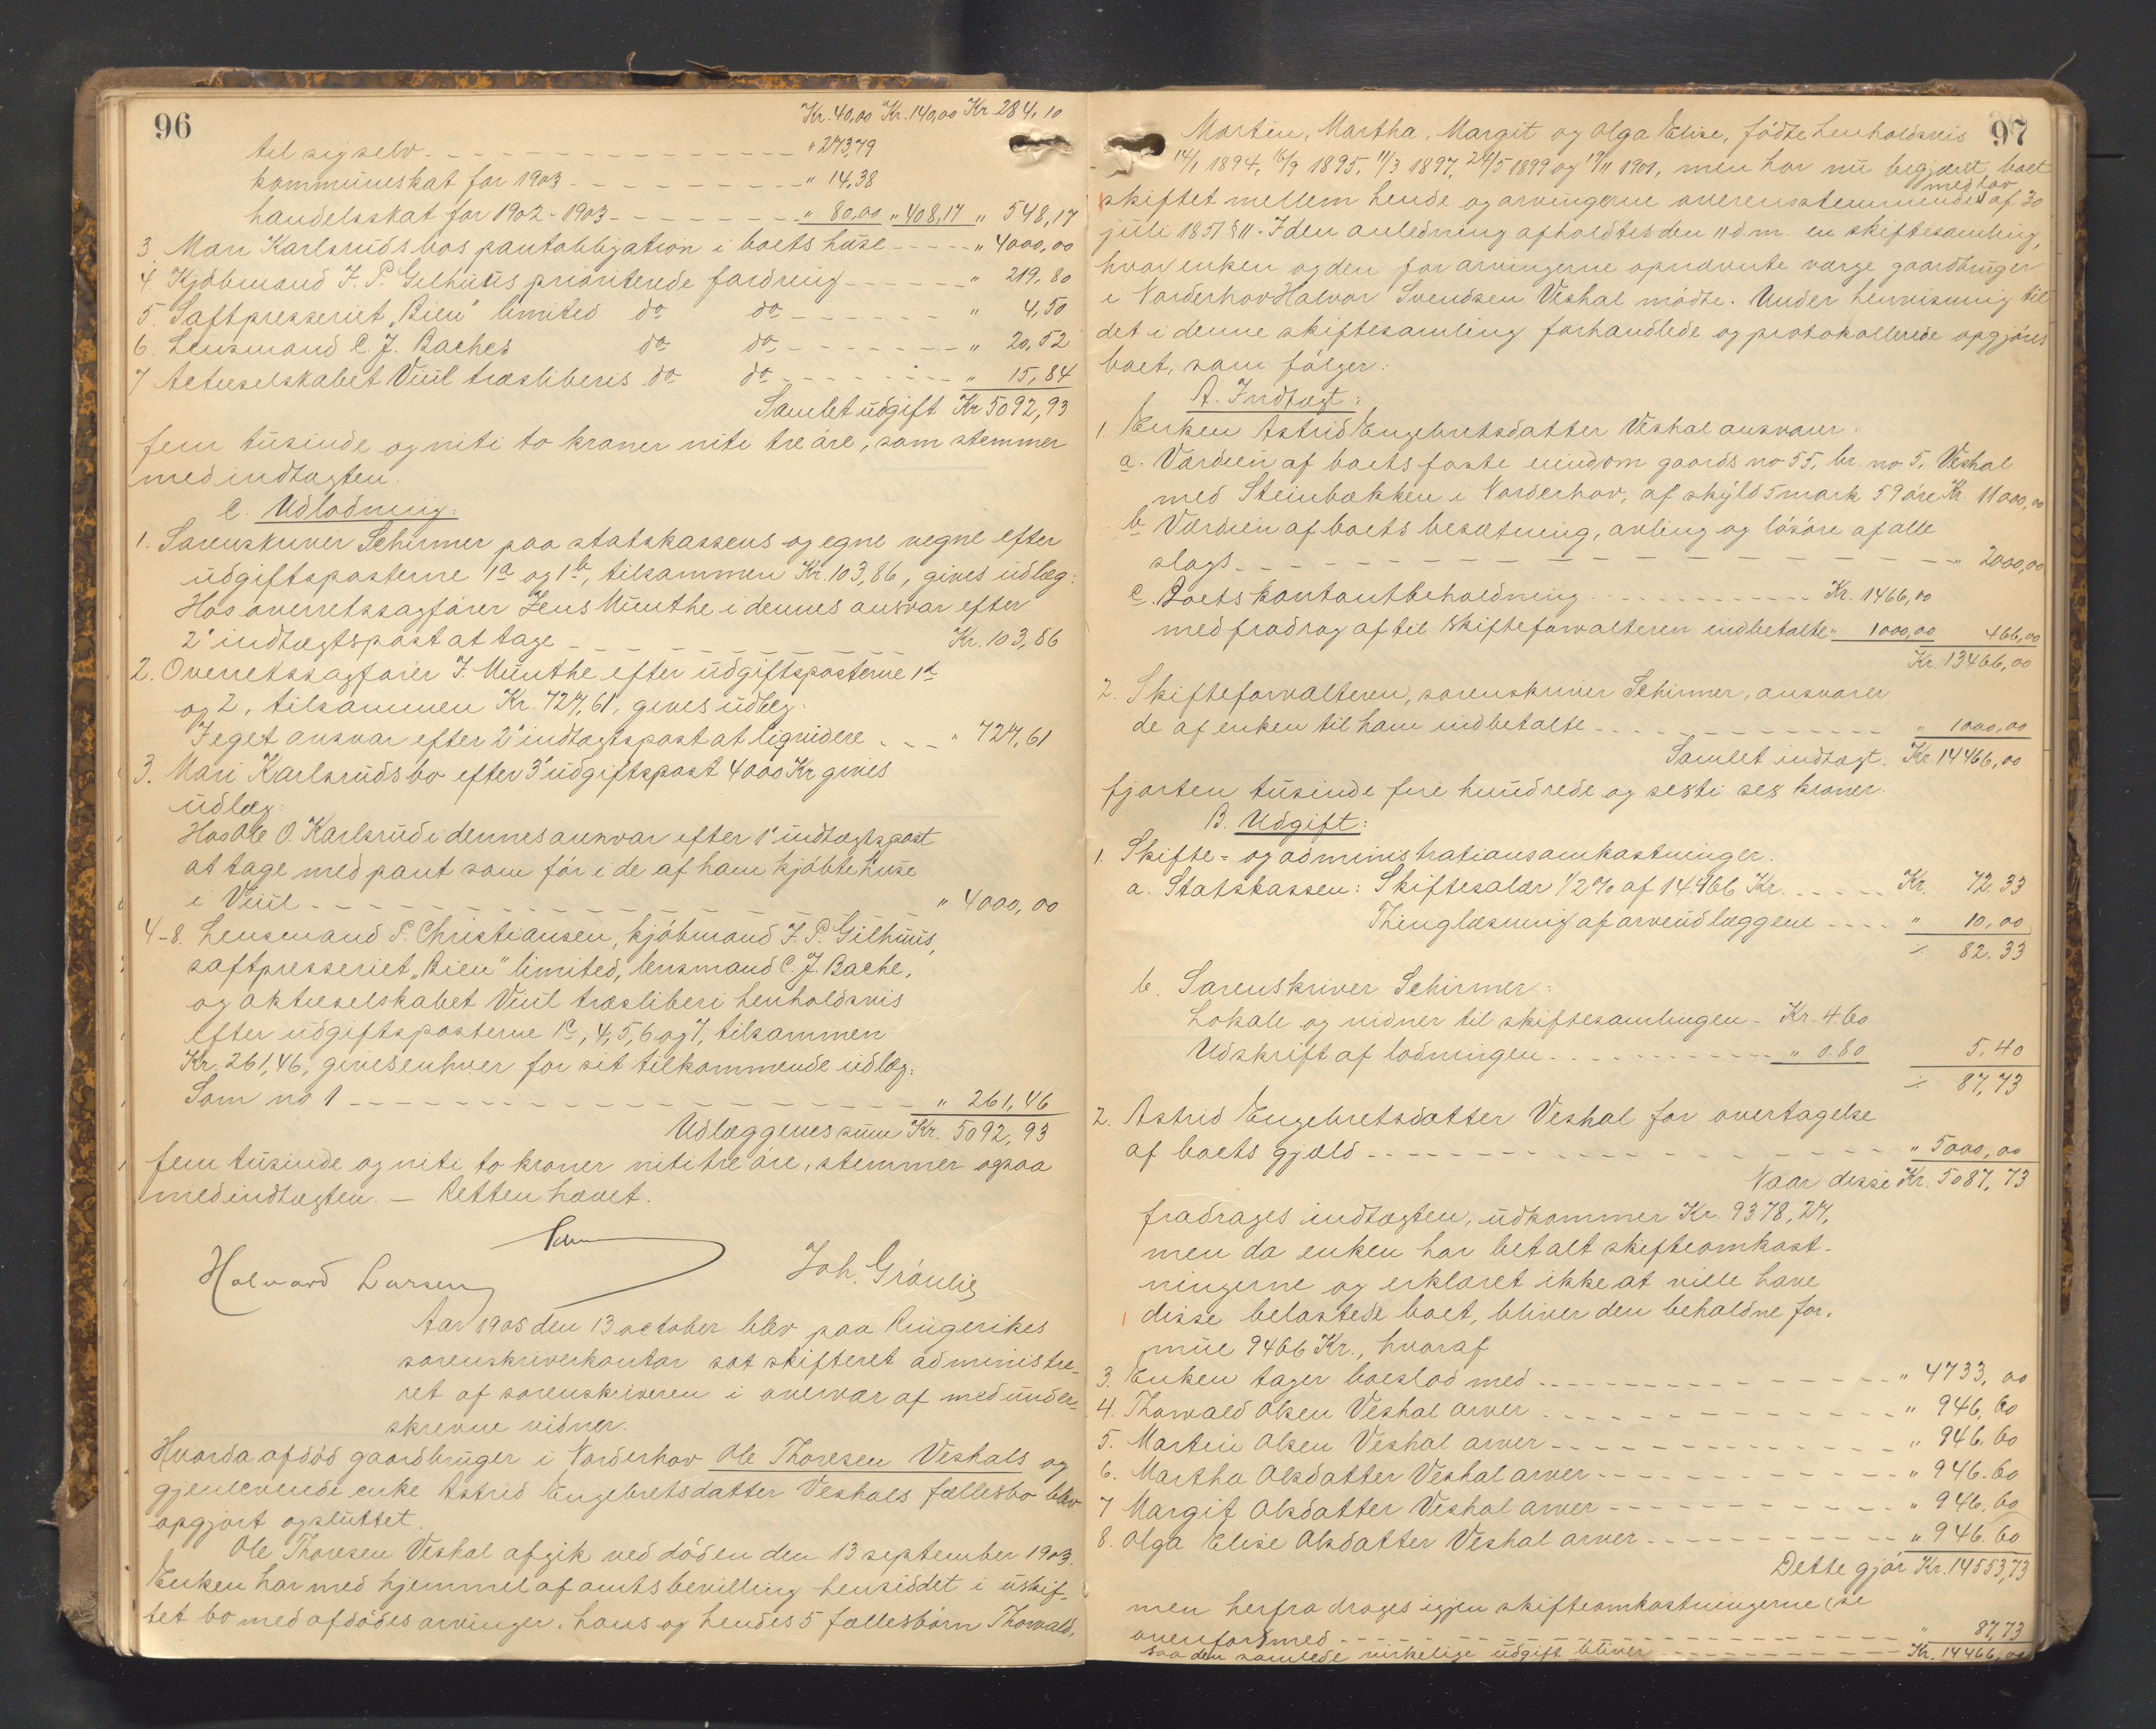 96
Kr. 40,00 Kr. 140,00 Kr. 284,10
til sig selv " 273,79
kommuneskat for 1903 " 14,38
handelsskat for 1902-1903 " 80,00 " 408,17 " 548,17
3. Mari Karlsruds bos pantobligation i boets huse " 4000,00
4. Kjøbmand J. P. Gilhuus prioriterede fordring " 219,80
5. Saftpresseriet „Bien" limited do do " 4,50
6. Lensmand C. J. Baches do do " 20,52
7 Actieselskabet Viul træsliberis do do " 15,84
Samlet udgift Kr 5092,93
fem tusinde og niti to kroner niti tre øre, som stemmer
med indtægten.
C. Udlodning:
1. Sorenskriver Schirmer paa statskassens og egne vegne efter
udgiftsposterne 1a og 1b, tilsammen Kr. 103,86, gives udlæg:
Hos overretssagfører Jens Munthe i dennes ansvar efter
2' indtægtspost at tage Kr. 103,86
2. Overretssagfører J. Munthe efter udgiftsposterne 1d
og 2, tilsammen Kr. 727,61, gives udlæg:
I eget ansvar efter 2' indtægtspost at liqvidere " 727,61
3. Mari Karlsruds bo efter 3' udgiftspost 4000 Kr gives
udlæg:
Hos Ole O. Karlsrud i dennes ansvar efter 1' indtægtspost
at tage med pant som før i de af ham kjøbte huse
i Viul " 4000,00
4-8. Lensmand P. Christiansen, kjøbmand J. P. Gilhuus,
saftpresseriet „Bien" limited, lensmand C. J. Bache,
og aktieselskabet Viul træsliberi henholdsvis
efter udgiftsposterne 1c, 4, 5, 6 og 7, tilsammen
Kr. 261,46, gives enhver for sit tilkommende udlæg:
Som no 1 " 261,46
Udlæggenes sum Kr. 5092,93
fem tusinde og niti to kroner niti tre øre, stemmer ogsaa
med indtægten. — Retten hævet.
Halvard Larsen Joh. Grønlie
Aar 1905 den 13 october blev paa Ringerikes
sorenskriverkontor sat skifteret administre-
ret af sorenskriveren i overvær af medunder-
skrevne vidner.
Hvorda afdød gaardbruger i Norderhov Ole Thoresen Veshals og
gjenlevende enke Astrid Engebretsdatter Veshals fællesbo blev
opgjort og sluttet.
Ole Thoresen Veshal afgik ved døden den 13 september 1903.
Enken har med hjemmel af amtsbevilling hensiddet i uskif-
tet bo med afdødes arvinger, hans og hendes 5 fællesbørn Thorvald,
97
Martin, Martha, Margit og Olga Elise, fødte henholdsvis
14/1 1894, 16/9 1895, 11/3 1897, 24/5 1899 og 19/11 1901, men har nu begjæret boet
skiftet mellem hende og arvingerne overensstemmende med lov af 30
juli 1851 § 11. I den anledning afholdtes den 11 d.m. en skiftesamling,
hvor enken og den for arvingerne opnævnte værge gaardbruger
i Norderhov Halvor Svendsen Veshal mødte. Under henvisning til
det i denne skiftesamling forhandlede og protokollerede opgjøres
boet, som følger:
A. Indtægt:
1. Enken Astrid Engebretsdatter Veshal ansvarer:
a. Værdien af boets faste eiendom gaards no 55, br. no 5, Veshal
med Steinbækken i Norderhov, af skyld 5 mark 59 øre Kr. 11000,00
b. Værdien af boets besætning, avling og løsøre af alle
slags " 2000,00
c. Boets kontantbeholdning Kr. 1466,00
med fradrag af til skifteforvalteren indbetalte " 1000,00 466,00
Kr. 13466,00
2. Skifteforvalteren, sorenskriver Schirmer, ansvarer
de af enken til ham indbetalte " 1000,00
Samlet indtægt. Kr. 14466,00
fjorten tusinde fire hundrede og sesti ses kroner.
B. Udgift:
1. Skifte- og administrationsomkostninger.
a. Statskassen: Skiftesalær 1/2 % af 14466 Kr. Kr. 72.33
Thinglæsning af arveudlæggene " 10,00
82.33
b. Sorenskriver Schirmer:
Lokale og vidner til skiftesamlingen - Kr. 4.60
Udskrift af lodningen " 0.80 5,40
87,73
2. Astrid Engebretsdatter Veshal for overtagelse
af boets gjæld " 5000,00
Naar disse Kr. 5087,73
fradrages indtægten, udkommer Kr. 9378,27,
men da enken har betalt skifteomkost-
ningerne og erklæret ikke at ville have
disse belastede boet, bliver den beholdne for-
mue 9466 Kr., hvoraf
3. Enken tager boeslod med " 4733,00
4. Thorvald Olsen Veshal arver " 946,60
5. Martin Olsen Veshal arver " 946.60
6. Martha Olsdatter Veshal arver " 946.60
7 Margit Olsdatter Veshal arver " 946.60
8. Olga Elise Olsdatter Veshal arver " 946.60
Dette gjør Kr. 14553,73
men herfra drages igjen skifteomkostningerne (se
ovenfor) med " 87,73
saa den samlede virkelige udgift bliver Kr. 14466,00